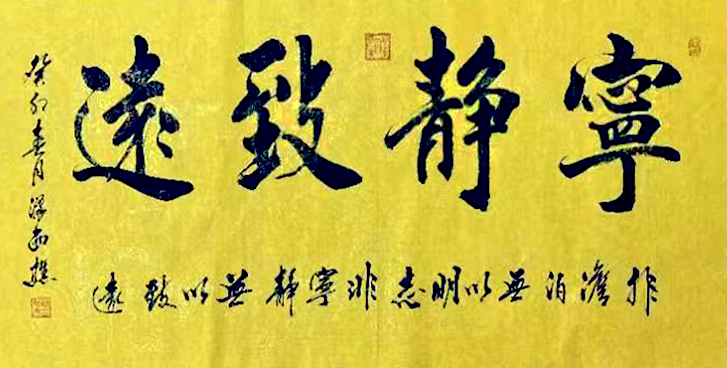 寧静致遠
非澹泊無以明志非寧静無以致遠
癸卯春月